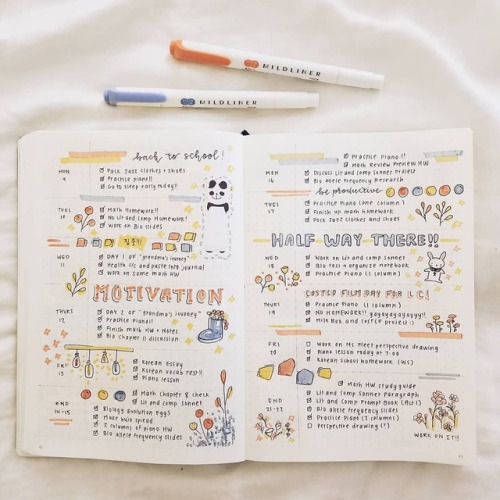 MILDLINER
MILDLINER
back to school!
MON
9
Pack Jazz Clothes + Shoes
Practice Piano!!
Go to sleep early today!!
TUES
10
Math Homework!!
No Lit and Comp Homework!
Work on Bio Slides
WED
11
DAY 1 OF "grandma's journey"
Health C/C and paste into journal
Work on some Math HW
MOTIVATION
THURS
12
DAY 2 OF "Grandma's Journey"
Practice Piano!
Finish Math HW + Notes
Bio Chapter 11 discussion
FRI
13
Korean essay
Korean vocab test!!
Piano lesson
WND
14-15
Math Chapter 8 check
Lit and Comp Sonnet
Biology Evolution Eggs
Make bujo spread
2 columns of piano HW
Bio allele frequency slides
Practice Piano!!
Math Review Preview HW
MON
16
Discuss Lit and Comp Sonnet Project
Bio Allele frequency Research
be productive
TUES
17
Practice Piano (one column)
Finish up math homework
Pack Jazz Clothes and shoes
HALF WAY THERE!!
WED
18
Work on Lit and Comp Sonnet
Practice Piano (1 column)
COSTCO FILM DAY FOR L/C!
THURS
19
Practice Piano (1 column)
NO HOMEWORK!!
FRI
20
Work on Ms Meet perspective drawing
Piano lesson today at 7:00
Korean School homework (WS)
WND
21-22
Math HW study guide
Lit and Comp Sonnet Paragraph
Lit and Comp Prompt Book (Act 1)
Bio allele frequency slides
Practice Piano (2 columns)
Perspective drawing (!)
WORK ON IT!!